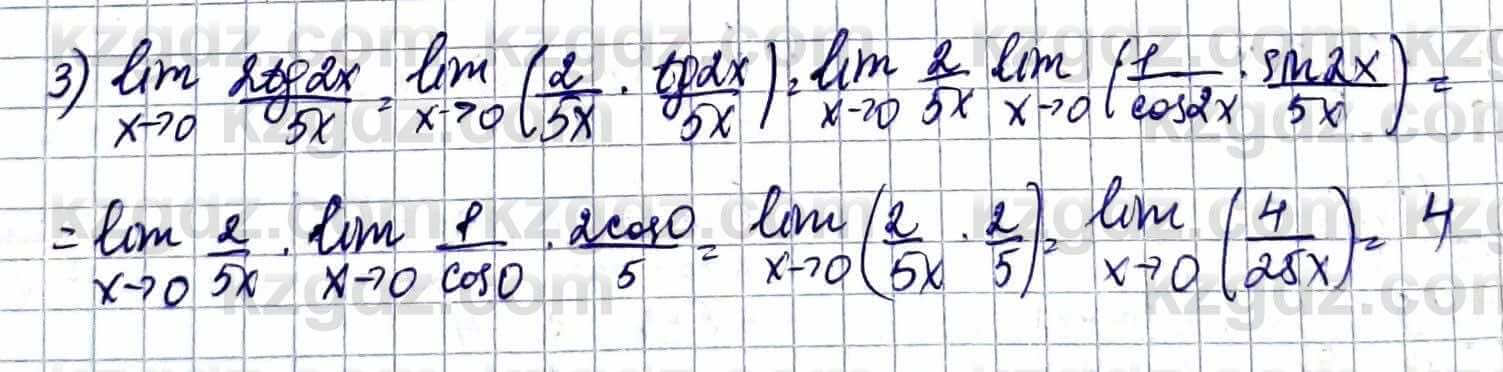 3) lim x→0 2tg2x/5x = lim x→0 (2/5x · tg2x/5x) = lim x→0 2/5x lim x→0 (1/cos2x · sin2x/5x) =
= lim x→0 2/5x · lim x→0 1/cos0 · 2cos0/5 = lim x→0 (2/5x · 2/5) = lim x→0 (4/25x) = 4